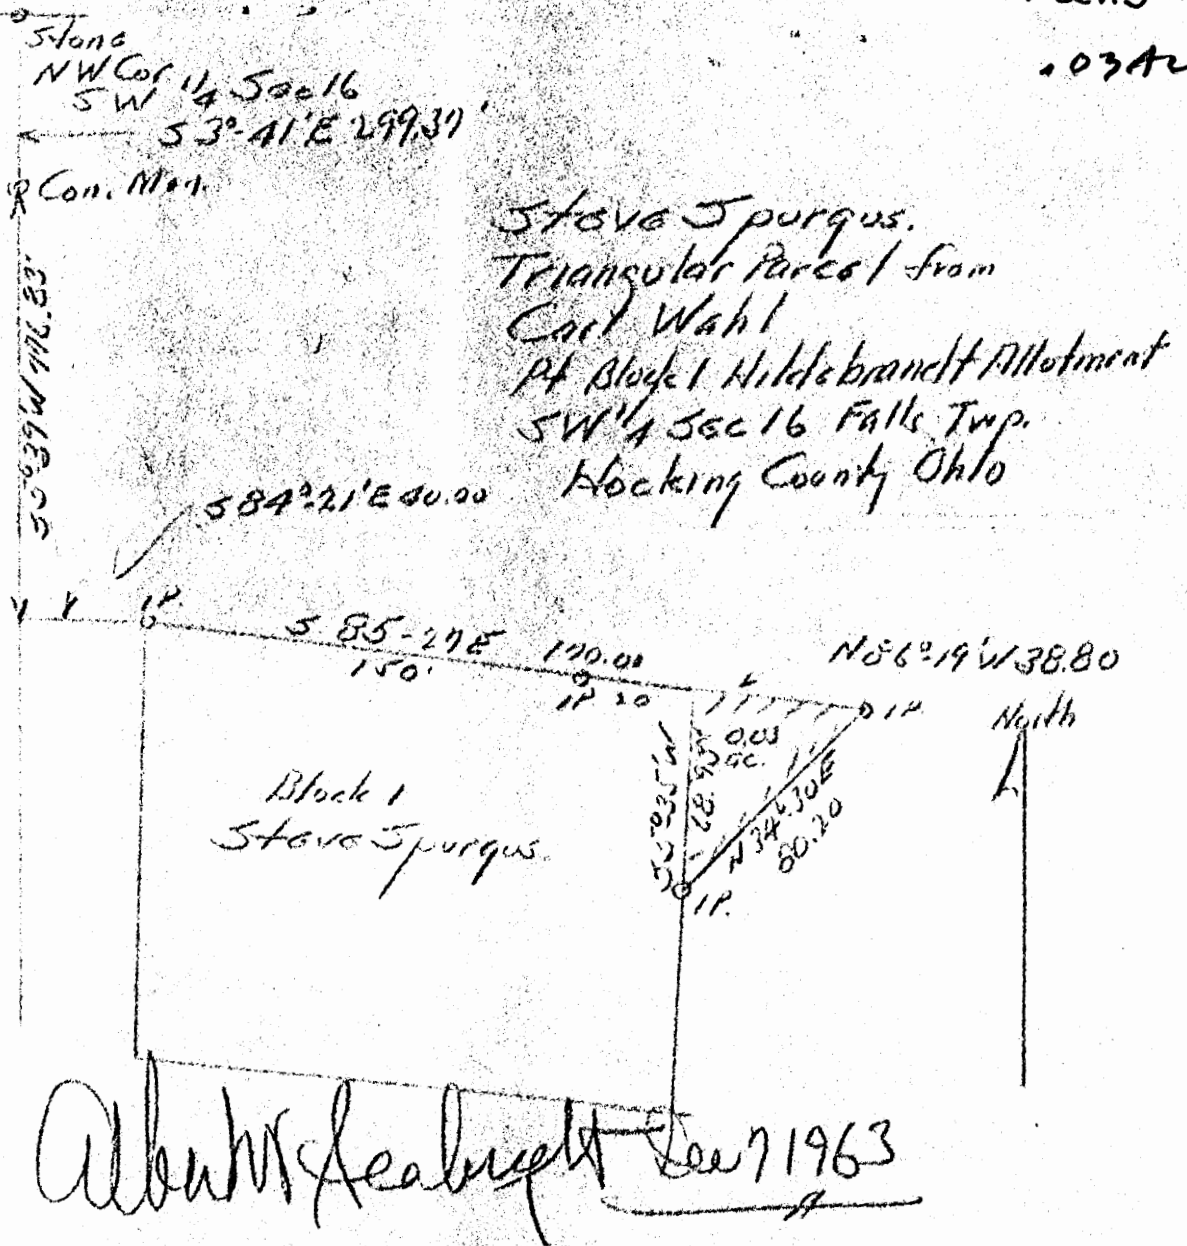 .03 Ac
Stone
NW Cor
SW 1/4 Sec 16
S 3°-41'E 299.37'
Con. Mon.
Steve Spurgus.
Triangular Parcel from
Carl Wahl
Pt Block 1 Hildebrandt Allotment
SW 1/4 Sec 16 Falls Twp.
Hocking County Ohio
S 84°-21'E 40.00
I.P.
S 85-27 E 170.00
150'
I.P. 20
N 86°-19'W 38.80
I.P.
North
0.03
ac.
S 5°-35'W
N 34°-30 E
80.20
I.P.
Block 1
Steve Spurgus.
7 1963